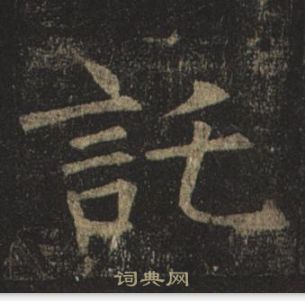 託
词典网